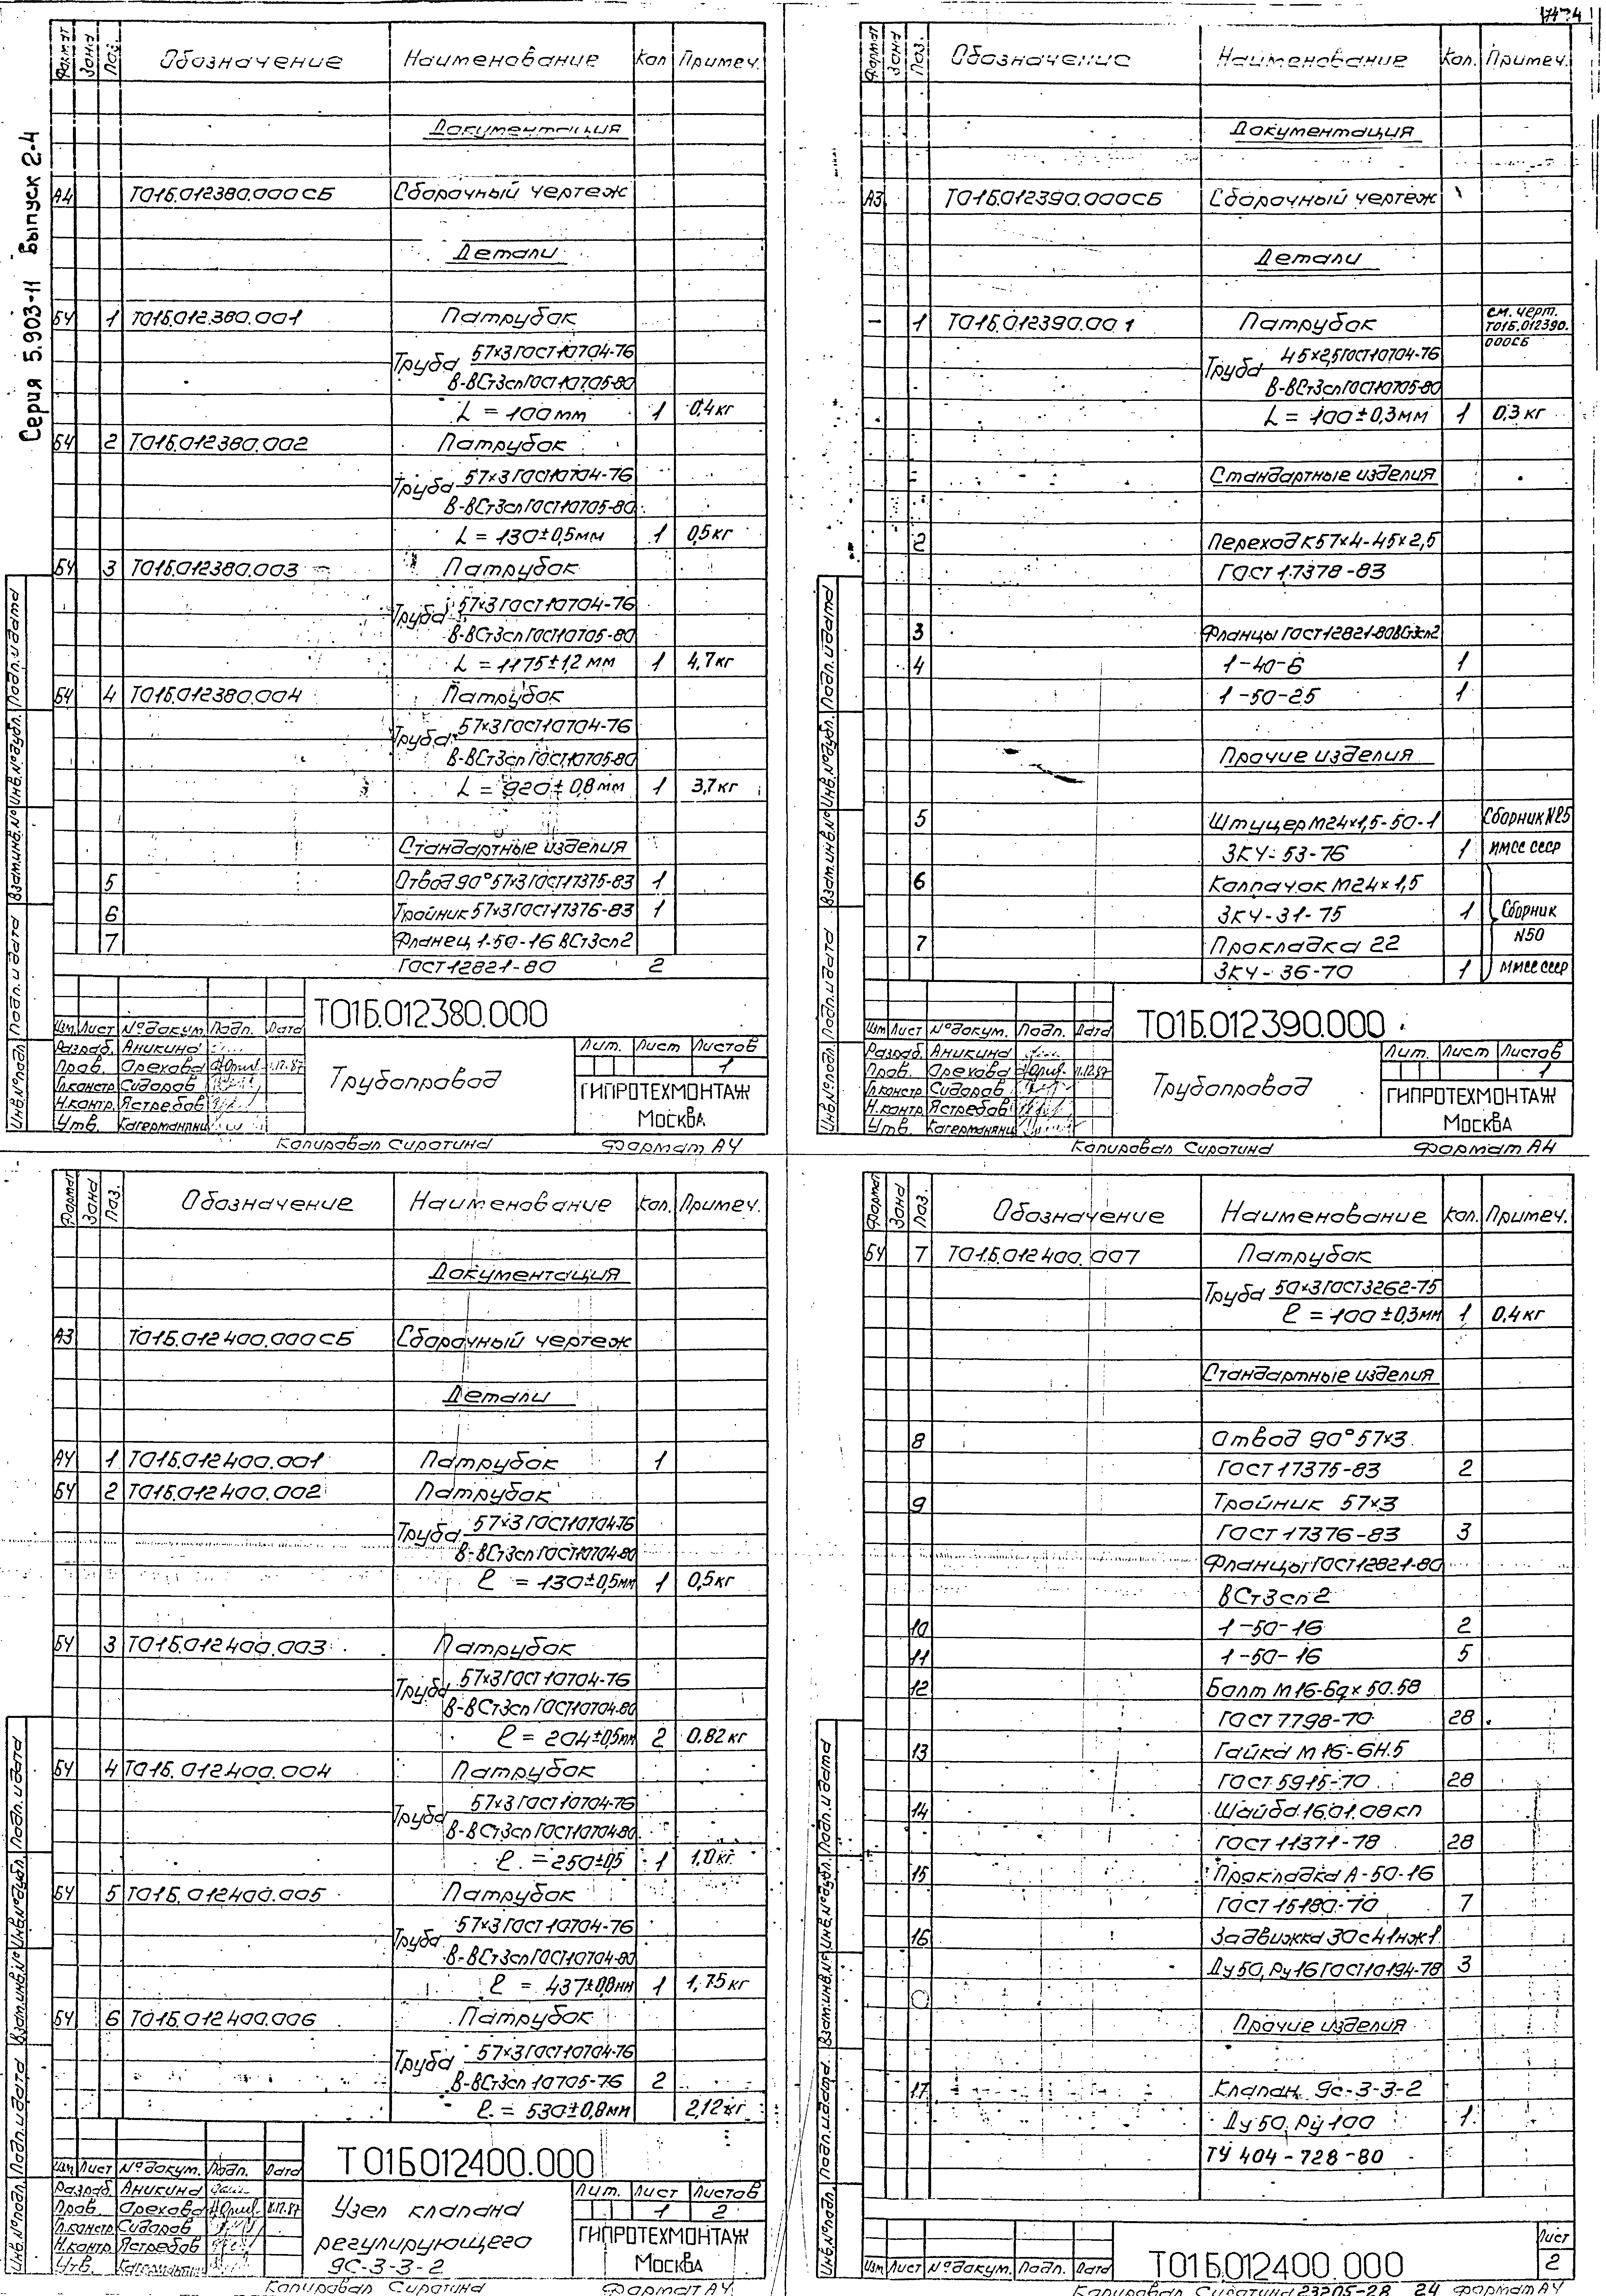 Серия 5.903-11 Выпуск 2-4
Формат Зона Поз. Обозначение Наименование Кол Примеч.
Документация
А4 Т01Б.012380.000СБ Сборочный чертеж
Детали
БЧ 1 Т01Б.012380.001 Патрубок
Труба 57×3 ГОСТ10704-76
В-ВСт3сп ГОСТ10705-80
L = 100 мм 1 0,4 кг
БЧ 2 Т01Б.012380.002 Патрубок
Труба 57×3 ГОСТ10704-76
В-ВСт3сп ГОСТ10705-80
L = 130±0,5мм 1 0,5 кг
БЧ 3 Т01Б.012380.003 Патрубок
Труба 57×3 ГОСТ10704-76
В-ВСт3сп ГОСТ10705-80
L = 1175±1,2 мм 1 4,7 кг
БЧ 4 Т01Б.012380.004 Патрубок
Труба 57×3 ГОСТ10704-76
В-ВСт3сп ГОСТ10705-80
L = 920±0,8 мм 1 3,7 кг
Стандартные изделия
5 Отвод 90° 57×3 ГОСТ17375-83 1
6 Тройник 57×3 ГОСТ17376-83 1
7 Фланец 1-50-16 ВСт3сп2
ГОСТ12821-80 2
Инв.№подл. Подп. и дата Взам.инв.№ Инв.№дубл. Подп. и дата
Т01Б.012380.000
Изм. Лист №докум. Подп. Дата
Разраб. Аникина
Пров. Орехова 11.12.87
Гл.констр. Сидоров
Н.контр. Ястребов
Утв.
Трубопровод
Лит. Лист Листов
1
ГИПРОТЕХМОНТАЖ
Москва
Копировал Сиротина Формат А4
Формат Зона Поз. Обозначение Наименование Кол. Примеч.
Документация
А3 Т01Б.012390.000СБ Сборочный чертеж
Детали
— 1 Т01Б.012390.001 Патрубок см. черт. Т01Б.012390.000СБ
Труба 45×2,5 ГОСТ10704-76
В-ВСт3сп ГОСТ10705-80
L = 100±0,3мм 1 0,3 кг
Стандартные изделия
2 Переход К57×4-45×2,5
ГОСТ 17378-83
3 Фланцы ГОСТ12821-80 ВСт3сп2
4 1-40-6 1
1-50-25 1
Прочие изделия
5 Штуцер М24×1,5-50-1 Сборник №25
ЗКЧ-53-76 1 ММСС СССР
6 Колпачок М24×1,5
ЗКЧ-31-75 1 Сборник
7 Прокладка 22 №50
ЗКЧ-36-70 1 ММСС СССР
Инв.№подл. Подп. и дата Взам.инв.№ Инв.№дубл. Подп. и дата
Т01Б.012390.000
Изм Лист №докум. Подп. Дата
Разраб. Аникина
Пров. Орехова 11.12.87
Гл.констр. Сидоров
Н.контр. Ястребов
Утв.
Трубопровод
Лит. Лист Листов
1
ГИПРОТЕХМОНТАЖ
Москва
Копировал Сиротина Формат А4
Формат Зона Поз. Обозначение Наименование Кол. Примеч.
Документация
А3 Т01Б.012400.000СБ Сборочный чертеж
Детали
А4 1 Т01Б.012400.001 Патрубок 1
БЧ 2 Т01Б.012400.002 Патрубок
Труба 57×3 ГОСТ10704-76
В-ВСт3сп ГОСТ10704-80
ℓ = 130±0,5мм 1 0,5 кг
БЧ 3 Т01Б.012400.003 Патрубок
Труба 57×3 ГОСТ10704-76
В-ВСт3сп ГОСТ10704-80
ℓ = 204±0,5мм 2 0,82 кг
БЧ 4 Т01Б.012400.004 Патрубок
Труба 57×3 ГОСТ10704-76
В-ВСт3сп ГОСТ10704-80
ℓ = 250±0,5 1 1,0 кг
БЧ 5 Т01Б.012400.005 Патрубок
Труба 57×3 ГОСТ10704-76
В-ВСт3сп ГОСТ10704-80
ℓ = 437±0,8мм 1 1,75 кг
БЧ 6 Т01Б.012400.006 Патрубок
Труба 57×3 ГОСТ10704-76
В-ВСт3сп 10705-76 2
ℓ = 530±0,8мм 2,12 кг
Инв.№подл. Подп. и дата Взам.инв.№ Инв.№дубл. Подп. и дата
Т01Б012400.000
Изм. Лист №докум. Подп. Дата
Разраб. Аникина
Пров. Орехова 11.12.87
Гл.констр. Сидоров
Н.контр. Ястребов
Утв.
Узел клапана
регулирующего
9с-3-3-2
Лит. Лист Листов
1 2
ГИПРОТЕХМОНТАЖ
Москва
Копировал Сиротина Формат А4
Формат Зона Поз. Обозначение Наименование Кол. Примеч.
БЧ 7 Т01Б.012400.007 Патрубок
Труба 50×3 ГОСТ3262-75
ℓ = 100±0,3мм 1 0,4 кг
Стандартные изделия
8 Отвод 90° 57×3
ГОСТ 17375-83 2
9 Тройник 57×3
ГОСТ 17376-83 3
Фланцы ГОСТ12821-80
ВСт3сп2
10 1-50-16 2
11 1-50-16 5
12 Болт М16-6g×50.58
ГОСТ 7798-70 28
13 Гайка М16-6Н.5
ГОСТ 5915-70 28
14 Шайба 16.01.08кп
ГОСТ 11371-78 28
15 Прокладка А-50-16
ГОСТ 15180-70 7
16 Задвижка 30с41нж1
Ду 50, Ру16 ГОСТ10194-78 3
Прочие изделия
17 Клапан 9с-3-3-2
Ду 50, Ру 100 1
ТУ 404-728-80
Инв.№подл. Подп. и дата Взам.инв.№ Инв.№дубл. Подп. и дата
Изм Лист №докум. Подп. Дата
Т01Б.012400.000
Лист
2
Копировал Сиротина 23205-28 24 Формат А4